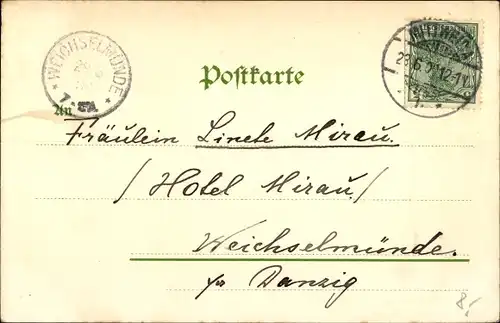 WEICHSELMÜNDE
Postkarte
An
Fräulein Linete Mirau.
/Hotel Mirau/
Weichselmünde.
Danzig
8/-